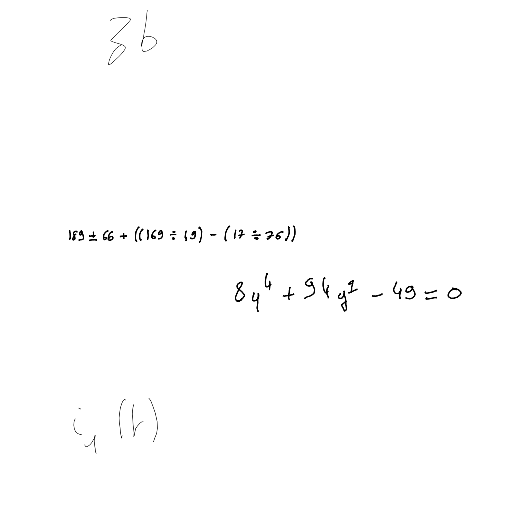 3b
189 ± 66 + ((169 ÷ 19) − (17 ÷ 76))
8y⁴ + 94y² − 49 = 0
i₁(t)